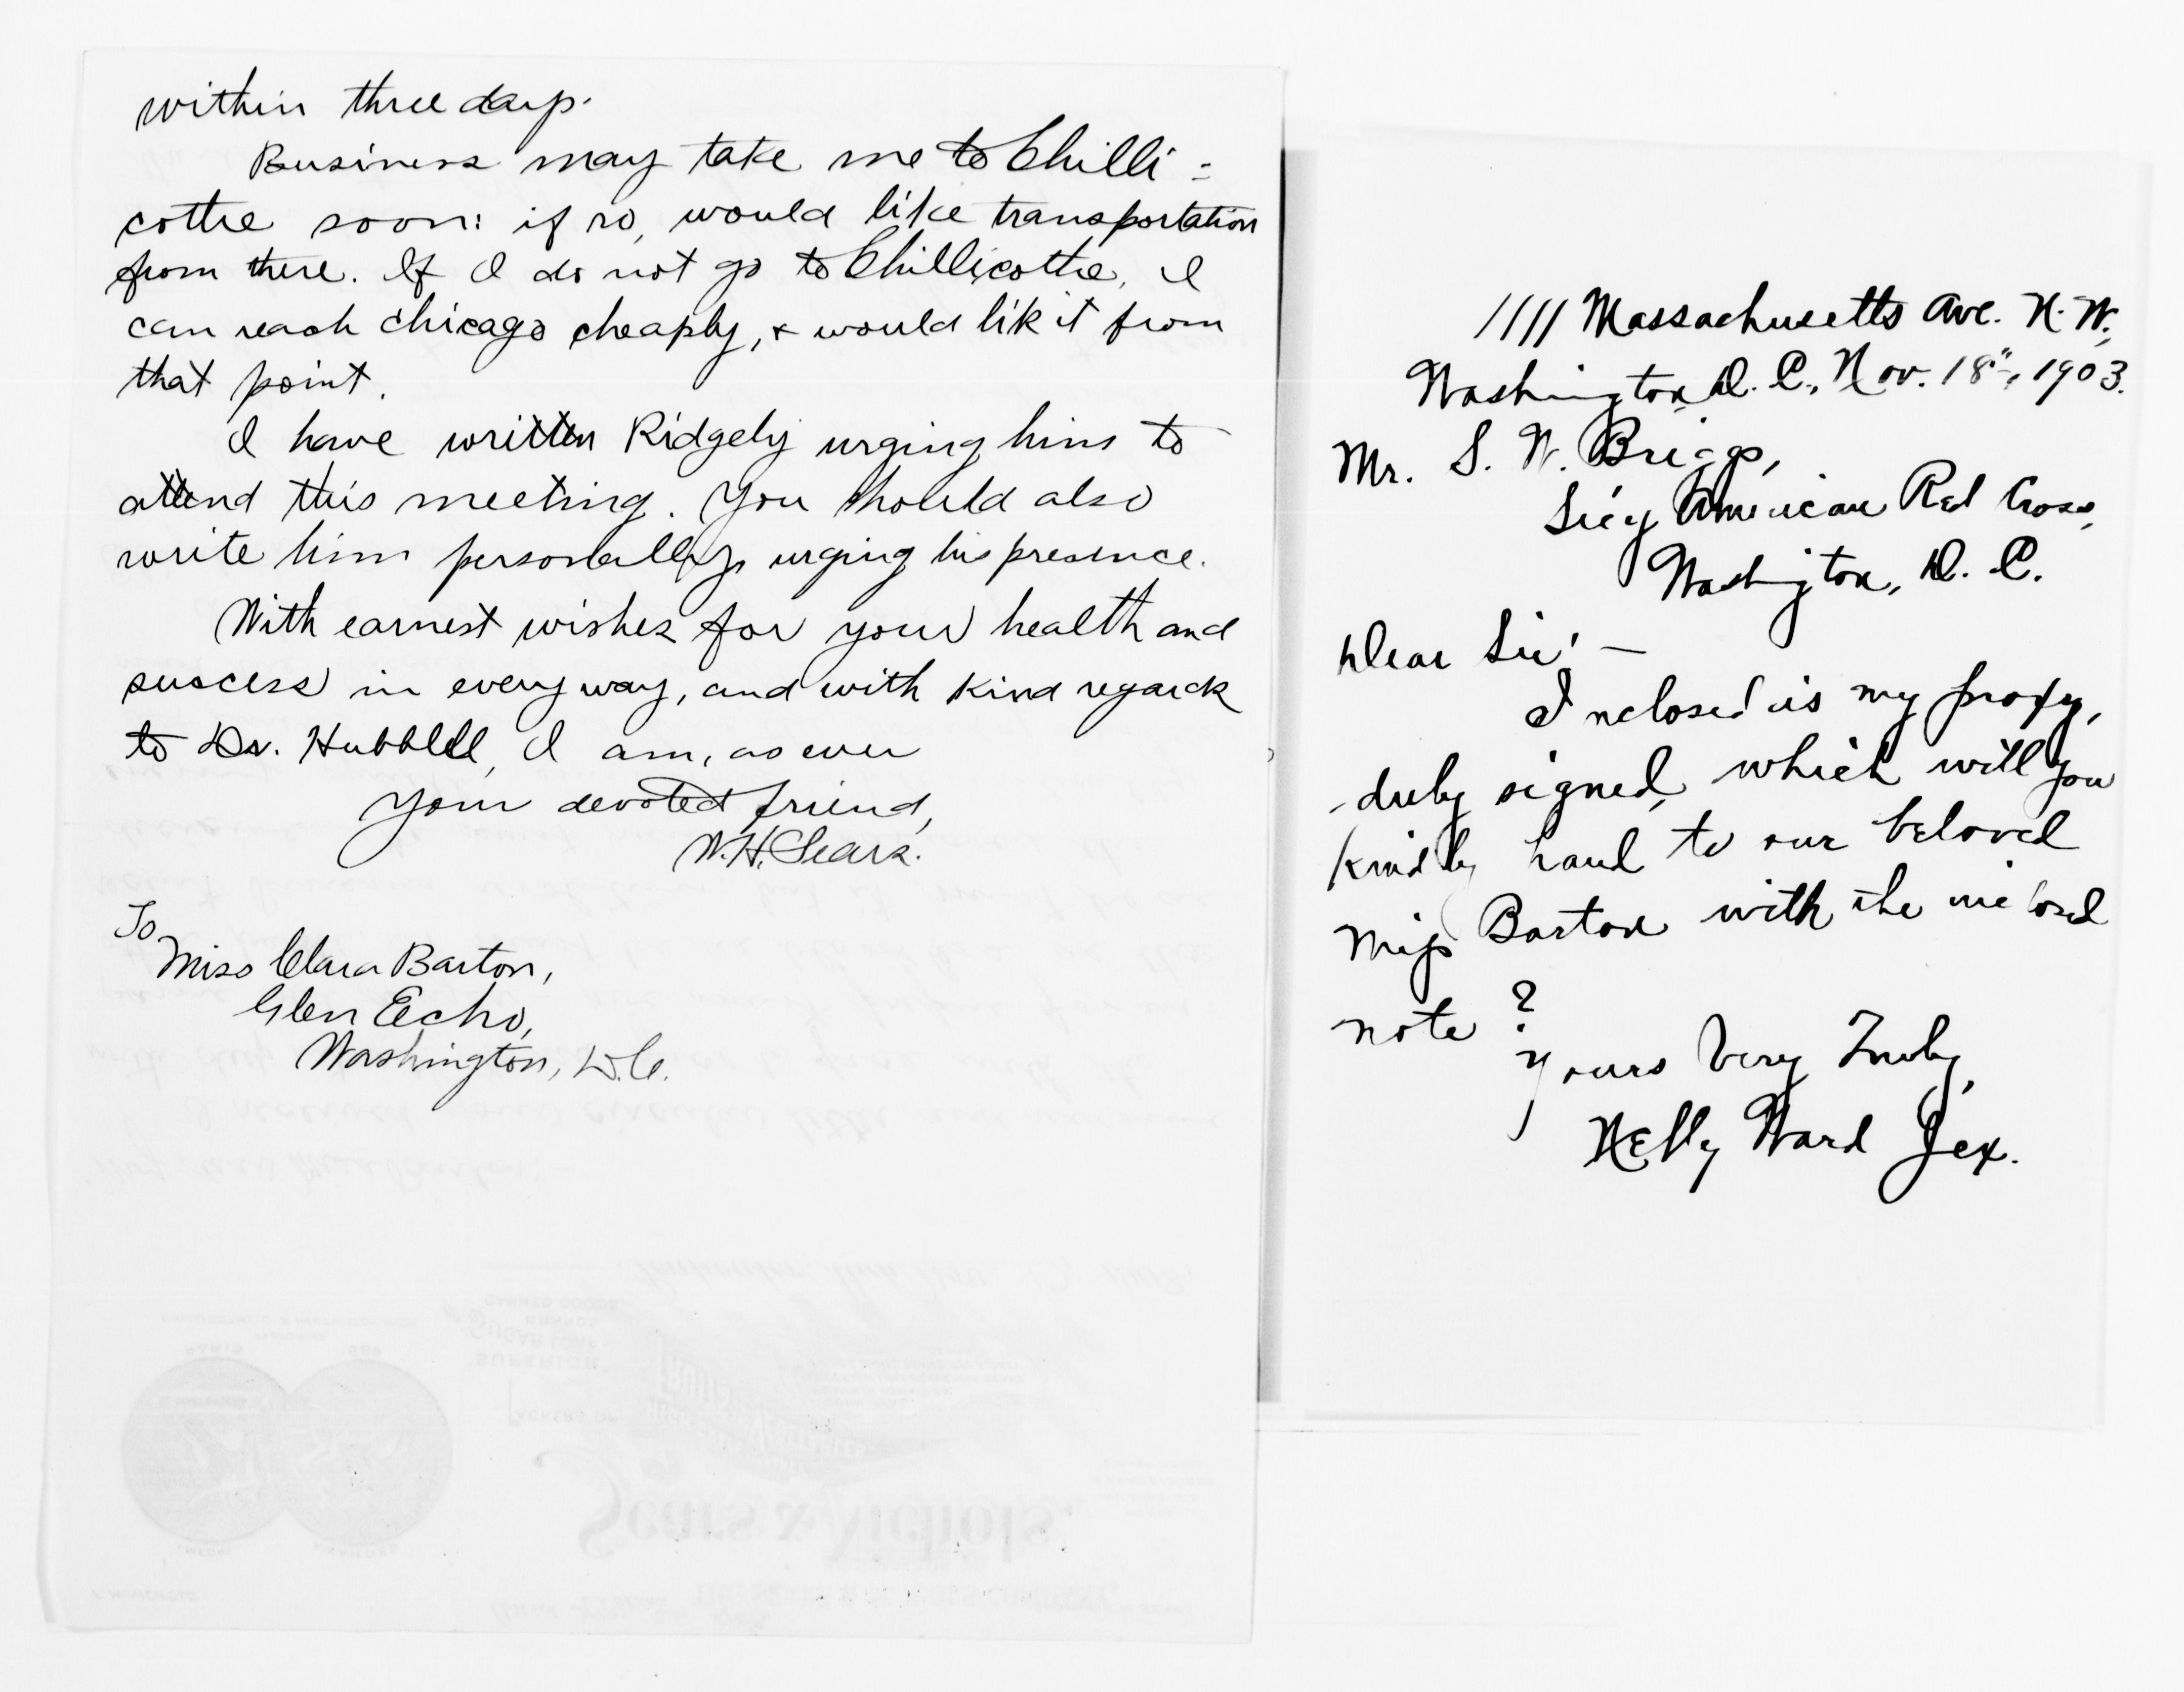 within three days.
Business may take me to Chilli=
cothe soon: if so, would like transportation
from there. If I do not go to Chillicothe, I
can reach Chicago cheaply, & would lik it from
that point.
I have written Ridgely urging him to
attend this meeting. You should also
write him personally, urging his presence.
With earnest wishes for your health and
success in every way, and with kind regards
to Dr. Hubbell, I am, as ever
Your devoted friend,
W. H. Sears.
To
Miss Clara Barton,
Glen Echo,
Washington, D.C.
Sears & Nichols.
1111 Massachusetts Ave. N. W.,
Washington, D. C., Nov. 18", 1903.
Mr. S. W. Briggs,
Sec'y American Red Cross,
Washington, D. C.
Dear Sir: —
Inclosed is my proxy,
duly signed, which will you
kindly hand to our beloved
Miss Barton with the inclosed
note?
Yours Very Truly,
Nelly Ward Jex.